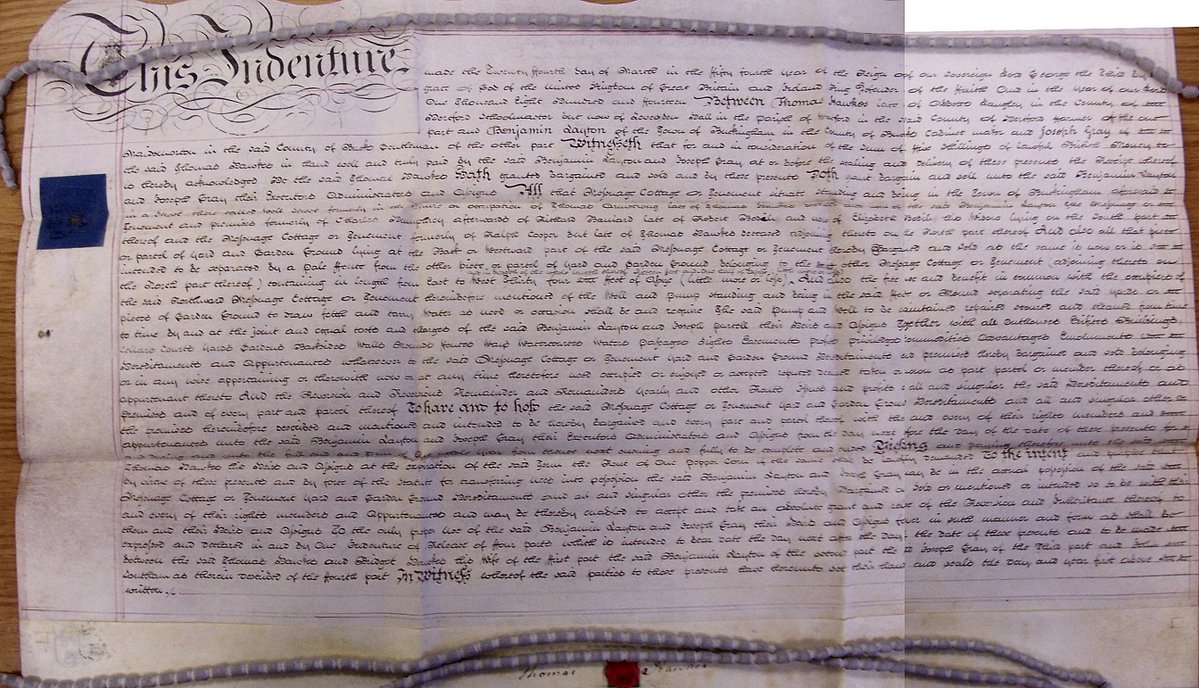 This Indenture
made the Twenty fourth day of March in the fifty fourth year of the Reign of our Sovereign Lord George the Third by the
grace of God of the united Kingdom of Great Britain and Ireland King Defender of the Faith And in the year of our Lord
One thousand Eight Hundred and fourteen Between Thomas Hawkes late of Abbots Langley in the County of
Hertford Schoolmaster but now of in the parish of Watford in the said County of Hertford Farmer of the one
part and Benjamin Layton of the Town of Buckingham in the County of Bucks Cabinet maker and Joseph Gray of
in the said County of Bucks Gentleman of the other part Witnesseth that for and in consideration of the sum of five Shillings of lawful British Money to
the said Thomas Hawkes in hand well and truly paid by the said Benjamin Layton and Joseph Gray at or before the sealing and delivery of these presents the Receipt whereof
is hereby acknowledged He the said Thomas Hawkes Hath granted bargained and sold and by these presents Doth grant bargain and sell unto the said Benjamin Layton
and Joseph Gray their Executors Administrators and Assigns All that Messuage Cottage or Tenement situate standing and being in the Town of Buckingham aforesaid
in a Street there called Well Street formerly in the or occupation of Thomas Armstrong late of Thomas
Tenement and premises formerly of Charles afterwards of Richard late of Robert and now of Elizabeth his Widow lying on the South part
thereof and the Messuage Cottage or Tenement formerly of Ralph Cooper but late of Thomas Hawkes deceased adjoining thereto on the North part thereof And also all that piece
or parcel of Yard and Garden Ground lying at the Back or Westward part of the said Messuage Cottage or Tenement hereby Bargained and Sold as the same is now or is
intended to be separated by a Pale Fence from the other piece or parcel of Yard and Garden Ground belonging to the other Messuage Cottage or Tenement (adjoining thereto on
the North part thereof) containing in length from East to West Thirty four feet of Assize (little more or less) And also the free use and benefit in common with the occupiers of
the said Northward Messuage Cottage or Tenement hereinbefore mentioned of the Well and Pump standing and being in the said or Mound separating the said Yards or
pieces of Garden Ground to draw fetch and carry Water as need or occasion shall be and require The said Pump and Well to be maintained repaired and cleansed from time
to time by and at the joint and equal costs and charges of the said Benjamin Layton and Joseph their Heirs and Assigns Together with all Outhouses Edifices Buildings
Courts Yards Gardens Backsides Walls Ways Watercourses Waters Passages Rights Easements profits privileges Commodities Advantages Emoluments
Hereditaments and Appurtenances whatsoever to the said Messuage Cottage or Tenement Yard and Garden Ground Hereditaments and premises hereby bargained and sold belonging
or in any wise appertaining or therewith now or at any time heretofore used occupied or enjoyed or accepted reputed deemed taken or known as part parcel or member thereof or as
appurtenant thereto And the Reversion and Reversions Remainder and Remainders Yearly and other Rents Issues and profits of all and singular the said Hereditaments and
premises and of every part and parcel thereof To have and to hold the said Messuage Cottage or Tenement Yard and Garden Ground Hereditaments and all and singular other
the premises hereinbefore described and mentioned and intended to be hereby bargained and every part and parcel thereof with their and every of their rights members and
appurtenances unto the said Benjamin Layton and Joseph Gray their Executors Administrators and Assigns from the day next before the day of the date of these presents
unto the full end and term of One whole year from thence next ensuing and fully to be complete and ended Yielding and paying therefore unto the said
Thomas Hawkes his Heirs and Assigns at the expiration of the said Term the Rent of One pepper Corn if the same shall be lawfully demanded To the intent and purpose that
by virtue of these presents and by force of the Statute for transferring uses into possession the said Benjamin Layton and Joseph Gray may be in the actual possession of the said
Messuage Cottage or Tenement Yard and Garden Ground Hereditaments and all and singular other the premises hereby Bargained and Sold or mentioned or intended so to be with their
and every of their rights members and Appurtenances and may be thereby enabled to accept and take an absolute grant and release of the Reversion and Inheritance thereof to
them and their Heirs and Assigns To the only proper use of the said Benjamin Layton and Joseph Gray their Heirs and Assigns for ever in such manner and form as shall be
expressed and declared in and by One Indenture of Release of four parts which is intended to bear date the day next after the day of the date of these presents and to be made
between the said Thomas Hawkes and Bridget Hawkes his Wife of the first part the said Benjamin Layton of the second part the said Joseph Gray of the Third part and
as therein described of the fourth part In Witness whereof the said parties to these presents have hereunto set their Hands and seals the day and year first above
written
Thomas Hawkes